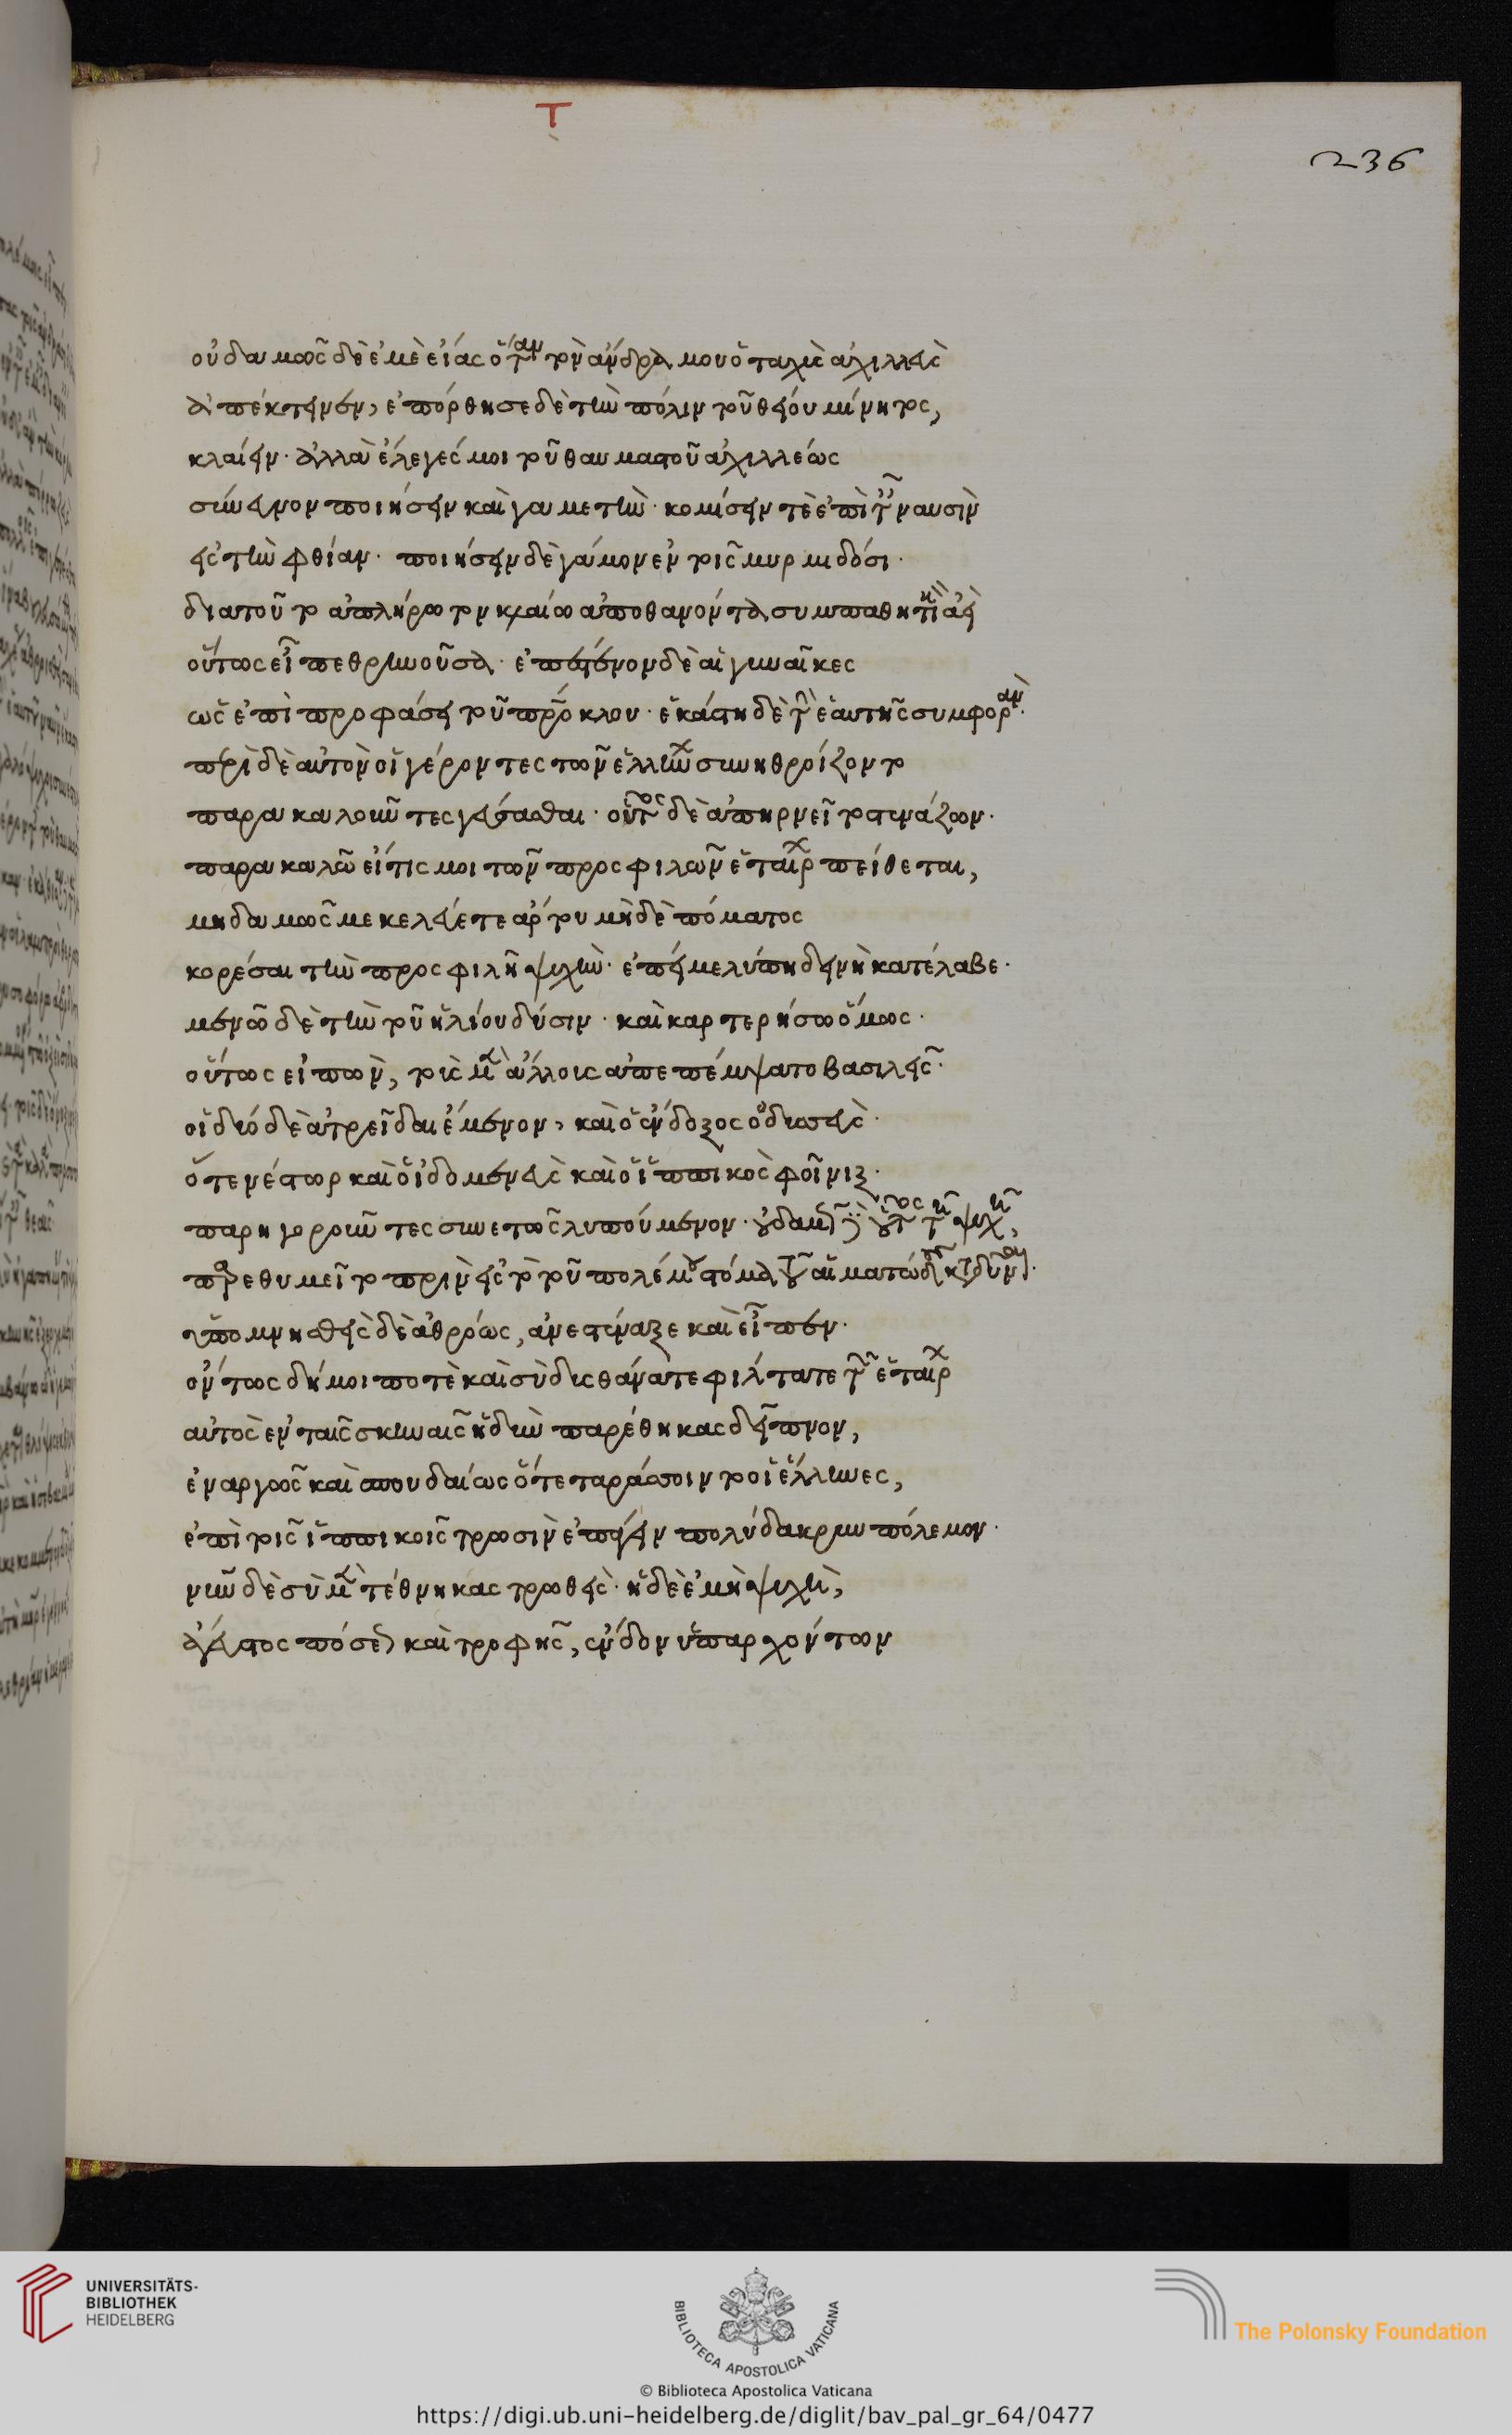 Τ
236
οὐδαμῶς δὲ ἐμὲ εἴας ὅταν τὸν ἄνδρα μου ὁ ταχὺς ἀχιλλεὺς
ἀπέκτεινεν, ἐπόρθησε δὲ τὴν πόλιν τοῦ θείου μύνητος,
κλαίειν· ἀλλὰ ἔλεγές μοι τοῦ θαυμαστοῦ ἀχιλλέως
σύνευνον ποιήσειν καὶ γαμετὴν· κομίσειν τὲ ἐπὶ τῶν ναυσὶν
εἰς τὴν φθίαν· ποιήσειν δὲ γάμον ἐν τοῖς μυρμιδόσι·
διατοῦτο ἀπλήρωτον κλαίω ἀποθανόντα συμπαθητικὸν ἀεὶ
οὕτως εἶπε θρηνοῦσα· ἐπέστενον δὲ αἱ γυναῖκες
ὡς ἐπὶ προφάσει τοῦ πατρόκλου· ἑκάστη δὲ τὴν ἑαυτῆς συμφορὰν·
περὶ δὲ αὐτὸν οἱ γέροντες τῶν ἑλλήνων συνηθροίζοντο
παρακαλοῦντες γεύσασθαι· οὗτος δὲ ἀπηρνεῖτο στενάζων·
παρακαλῶ εἴτις μοι τῶν προσφιλῶν ἑταίρων πείθεται,
μηδαμῶς με κελεύετε ἄρτου μηδὲ πόματος
κορέσαι τὴν προσφιλῆ ψυχὴν· ἐπεί με λύπη δεινὴ κατέλαβε·
μενῶ δὲ τὴν τοῦ ἡλίου δύσιν· καὶ καρτερήσω ὅμως·
οὕτως εἰπὼν, τοὺς μὲν ἄλλους ἀπεπέμψατο βασιλεῖς·
οἱ δύο δὲ ἀτρεῖδαι ἔμενον, καὶ ὁ ἔνδοξος ὀδυσσεὺς·
ὅτε νέστωρ καὶ ὁ ἰδομενεὺς καὶ ὁ ἱππικὸς φοῖνιξ·
παρηγοροῦντες συνετῶς λυπούμενον· οὐδαμῶς δὲ οὗτος τῇ ψυχῇ,
προεθυμεῖτο πρὶν εἰς τὸ τοῦ πολέμου στόμα τοῦ αἱματώδους κινδύνου·
ὑπομνησθεὶς δὲ ἀθρόως, ἀνεστέναξε καὶ εἶπεν·
ὄντως δή μοι ποτὲ καὶ σὺ δυσθάνατε φίλτατε τῶν ἑταίρων
αὐτὸς ἐν ταῖς σκηναῖς ἡδὺν παρέθηκας δεῖπνον,
ἐναργῶς καὶ σπουδαίως ὅτε ταράσσοιντο οἱ ἕλληνες,
ἐπὶ τοῖς ἱππικοῖς τρωσὶν ἐπάγειν πολύδακρυν πόλεμον·
νῦν δὲ σὺ μὲν τέθνηκας τρωθεὶς· ἡ δὲ ἐμὴ ψυχὴ,
ἄγευστος πόσεως καὶ τροφῆς, ἔνδον ὑπαρχόντων
UNIVERSITÄTS-
BIBLIOTHEK
HEIDELBERG
BIBLIOTECA APOSTOLICA VATICANA
The Polonsky Foundation
© Biblioteca Apostolica Vaticana
https://digi.ub.uni-heidelberg.de/diglit/bav_pal_gr_64/0477